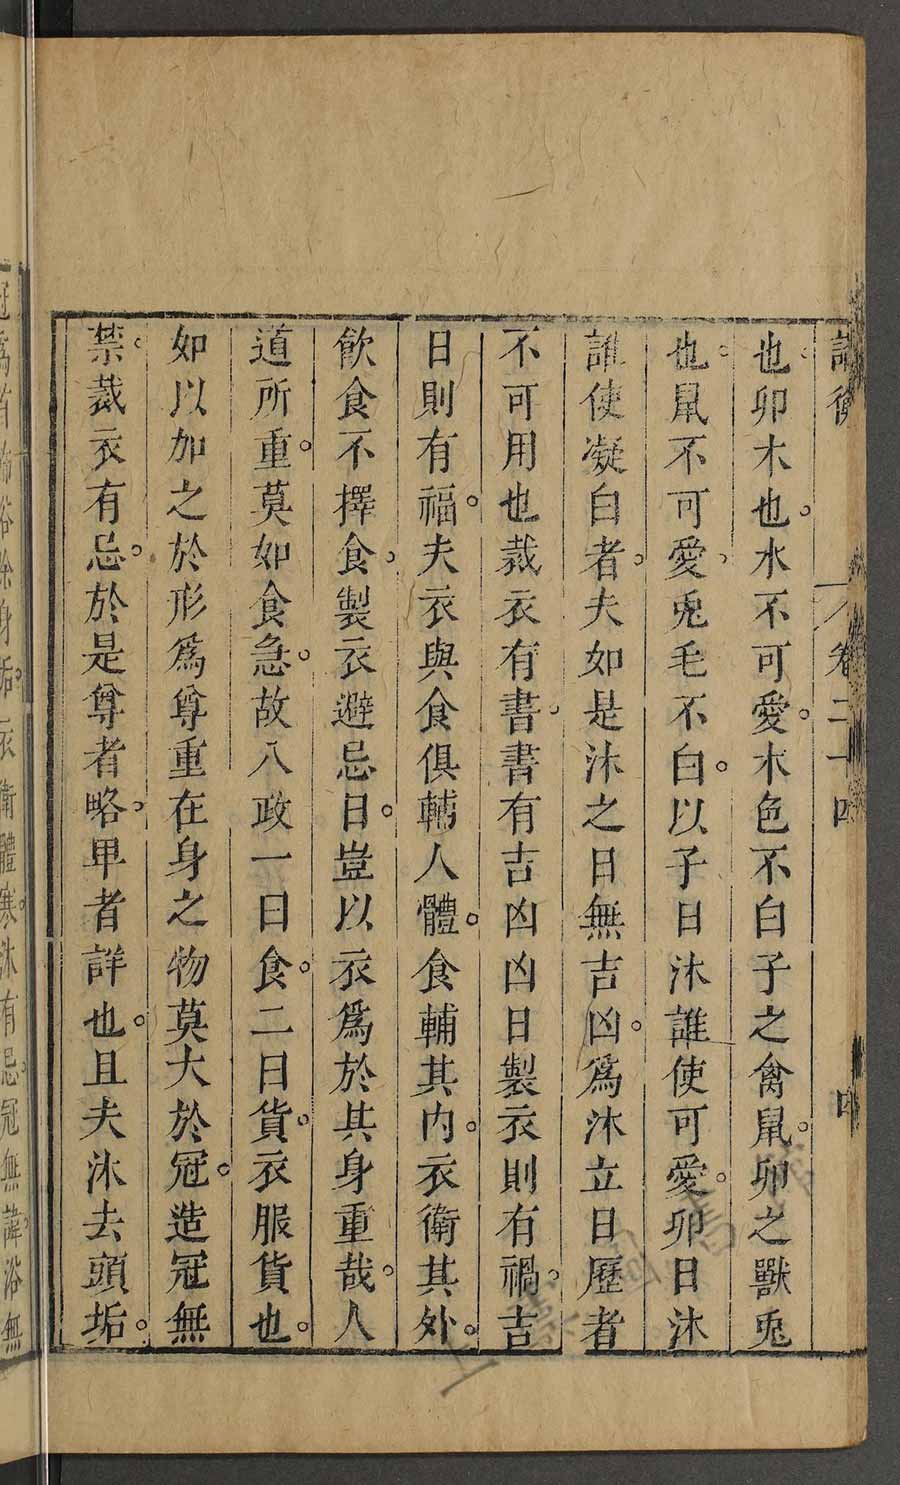 論衡 卷二十四 四
也。卯木也。水不可愛。木色不白子之禽鼠。卯之獸兎
也。鼠不可愛、兎毛不白。以子日沐誰使可愛。卯日沐
誰使凝白者。夫如是沐之日無吉凶。爲沐立日歷者
不可用也裁衣有書。書有吉凶凶日製衣則有禍。吉
日則有福。夫衣與食俱輔人體。食輔其内。衣衛其外。
飲食不擇食。製衣避忌日。豈以衣爲於其身重哉。人
道所重。莫如食急。故八政一曰食。二曰貨。衣服貨也。
如以加之於形爲尊重在身之物莫大於冠。造冠無
禁。裁衣有忌。於是尊者略。卑者詳也。且夫沐去頭垢。
冠爲首飾浴除身垢。衣衛體寒。沐有忌。冠無諱。浴無